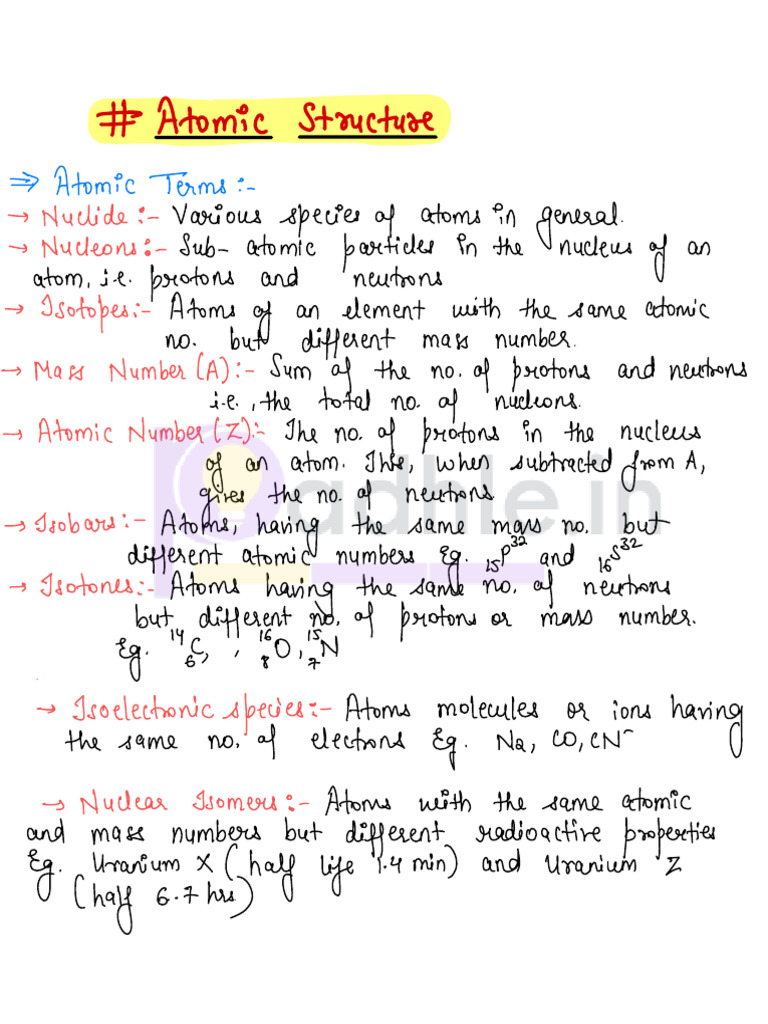 # Atomic Structure
⇒ Atomic Terms:-
→ Nuclide:- Various species of atoms in general.
→ Nucleons:- Sub-atomic particles in the nucleus of an
atom, i.e. protons and neutrons
→ Isotopes:- Atoms of an element with the same atomic
no. but different mass number.
→ Mass Number (A):- Sum of the no. of protons and neutrons
i.e., the total no. of nucleons.
→ Atomic Number (Z):- The no. of protons in the nucleus
of an atom. This, when subtracted from A,
gives the no. of neutrons
→ Isobars:- Atoms, having the same mass no. but
different atomic numbers Eg. ₁₅P³² and ₁₆S³²
→ Isotones:- Atoms having the same no. of neutrons
but different no. of protons or mass number.
Eg. ¹⁴₆C, , ¹⁶₈O, ¹⁵₇N
→ Isoelectronic species:- Atoms molecules or ions having
the same no. of electrons Eg. Na, CO, CN⁻
→ Nuclear Isomers:- Atoms with the same atomic
and mass numbers but different radioactive properties
Eg. Uranium X (half life 1.4 min) and Uranium Z
(half 6.7 hrs)
adhle.in